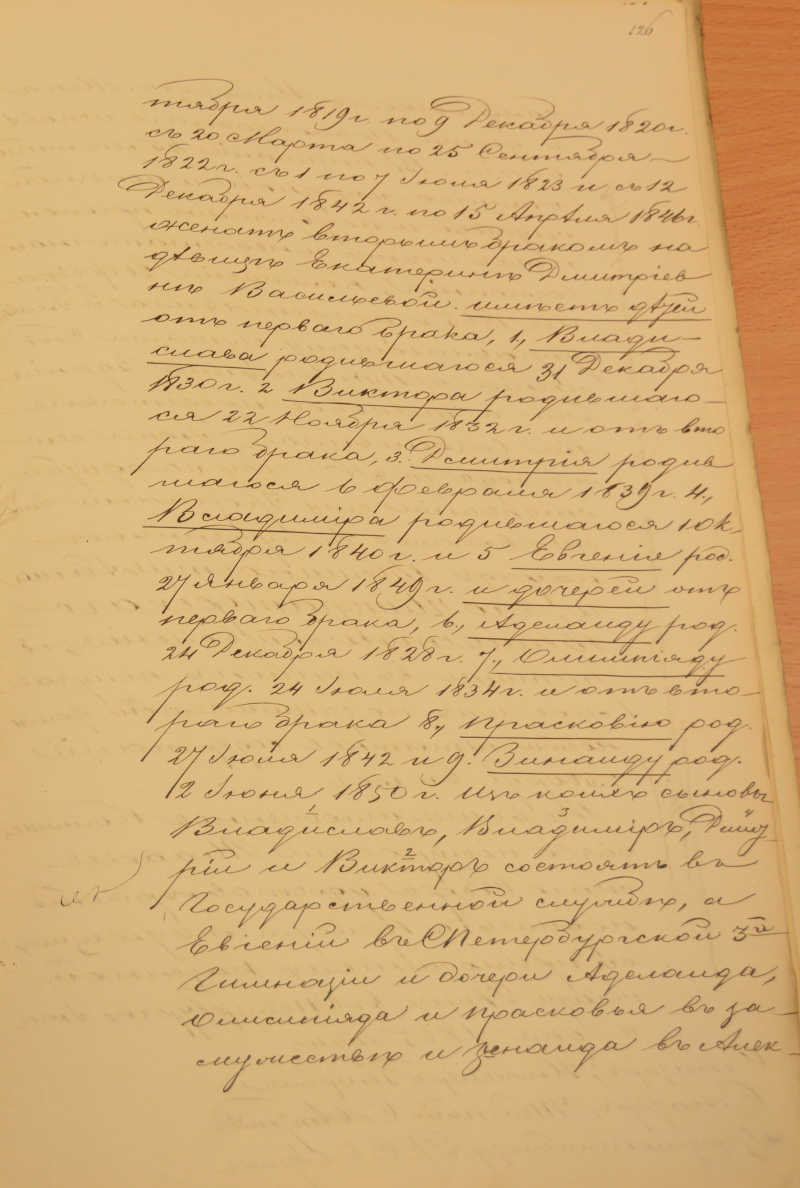 126
тября 1819 г. по 9 Декабря 1820 г.
съ 20 Марта по 25 Сентября
1822 г. съ 1 по 7 Іюля 1823 и съ 12
Декабря 1842 г. по 15 Апрѣля 1846 г.
женатъ вторымъ бракомъ на
дѣвицѣ Екатеринѣ Дмитріев
нѣ Васильевой. имѣетъ дѣтей
отъ перваго брака, 1, Влади-
слава родившагося 31 Декабря
1830 г. 2 Виктора родившаго-
ся 22 Ноября 1832 г. и отъ вто
раго брака, 3. Дмитрія родив
шагося 6 Февраля 1839 г. 4.,
Владиміра родившагося 1 Ок-
тября 1840 г. и 5 Евгенія род.
27 Января 1849 г. и дочерей отъ
перваго брака, 6., Аделаиду род.
24 Декабря 1828 г. 7., Олимпіяду
род. 24 Іюля 1834 г. и отъ вто-
раго брака 8., Прасковію род.
27 Іюля 1842 и 9. Зинаиду род.
2 Іюня 1850 г. Изъ коихъ сыновья
1 3 4
Владиславъ, Владиміръ, Дмит-
2
рій и Викторъ состоятъ въ
Государственной службѣ, а
Евгеній въ СПетербургской 3й
Гимназіи и дочери Аделаида,
Олимпіяда и Прасковья въ за-
мужествѣ и Зенаида въ Алек-